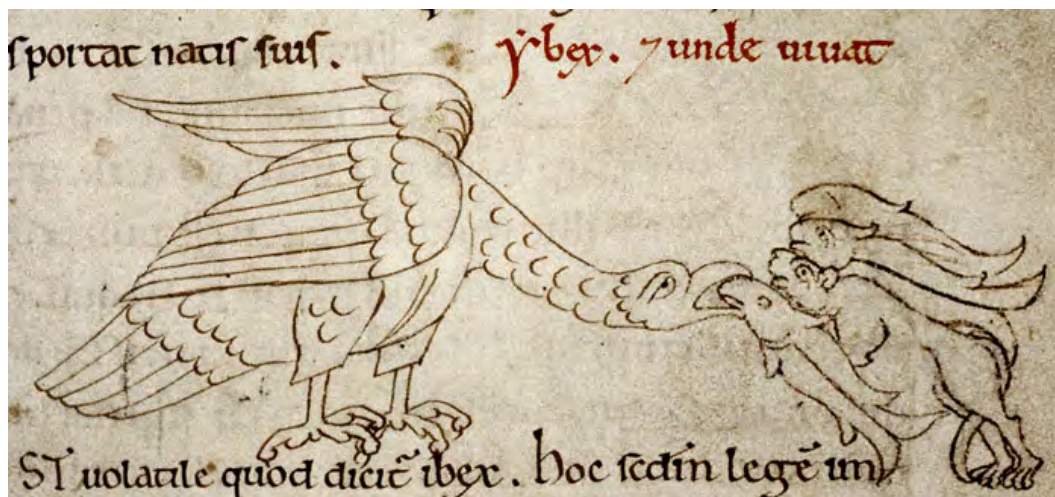 sportat natis suis.
ybex. ⁊ unde uiuat
ST uolatile quod dicit̃ ibex. hoc scdm̄ legē im